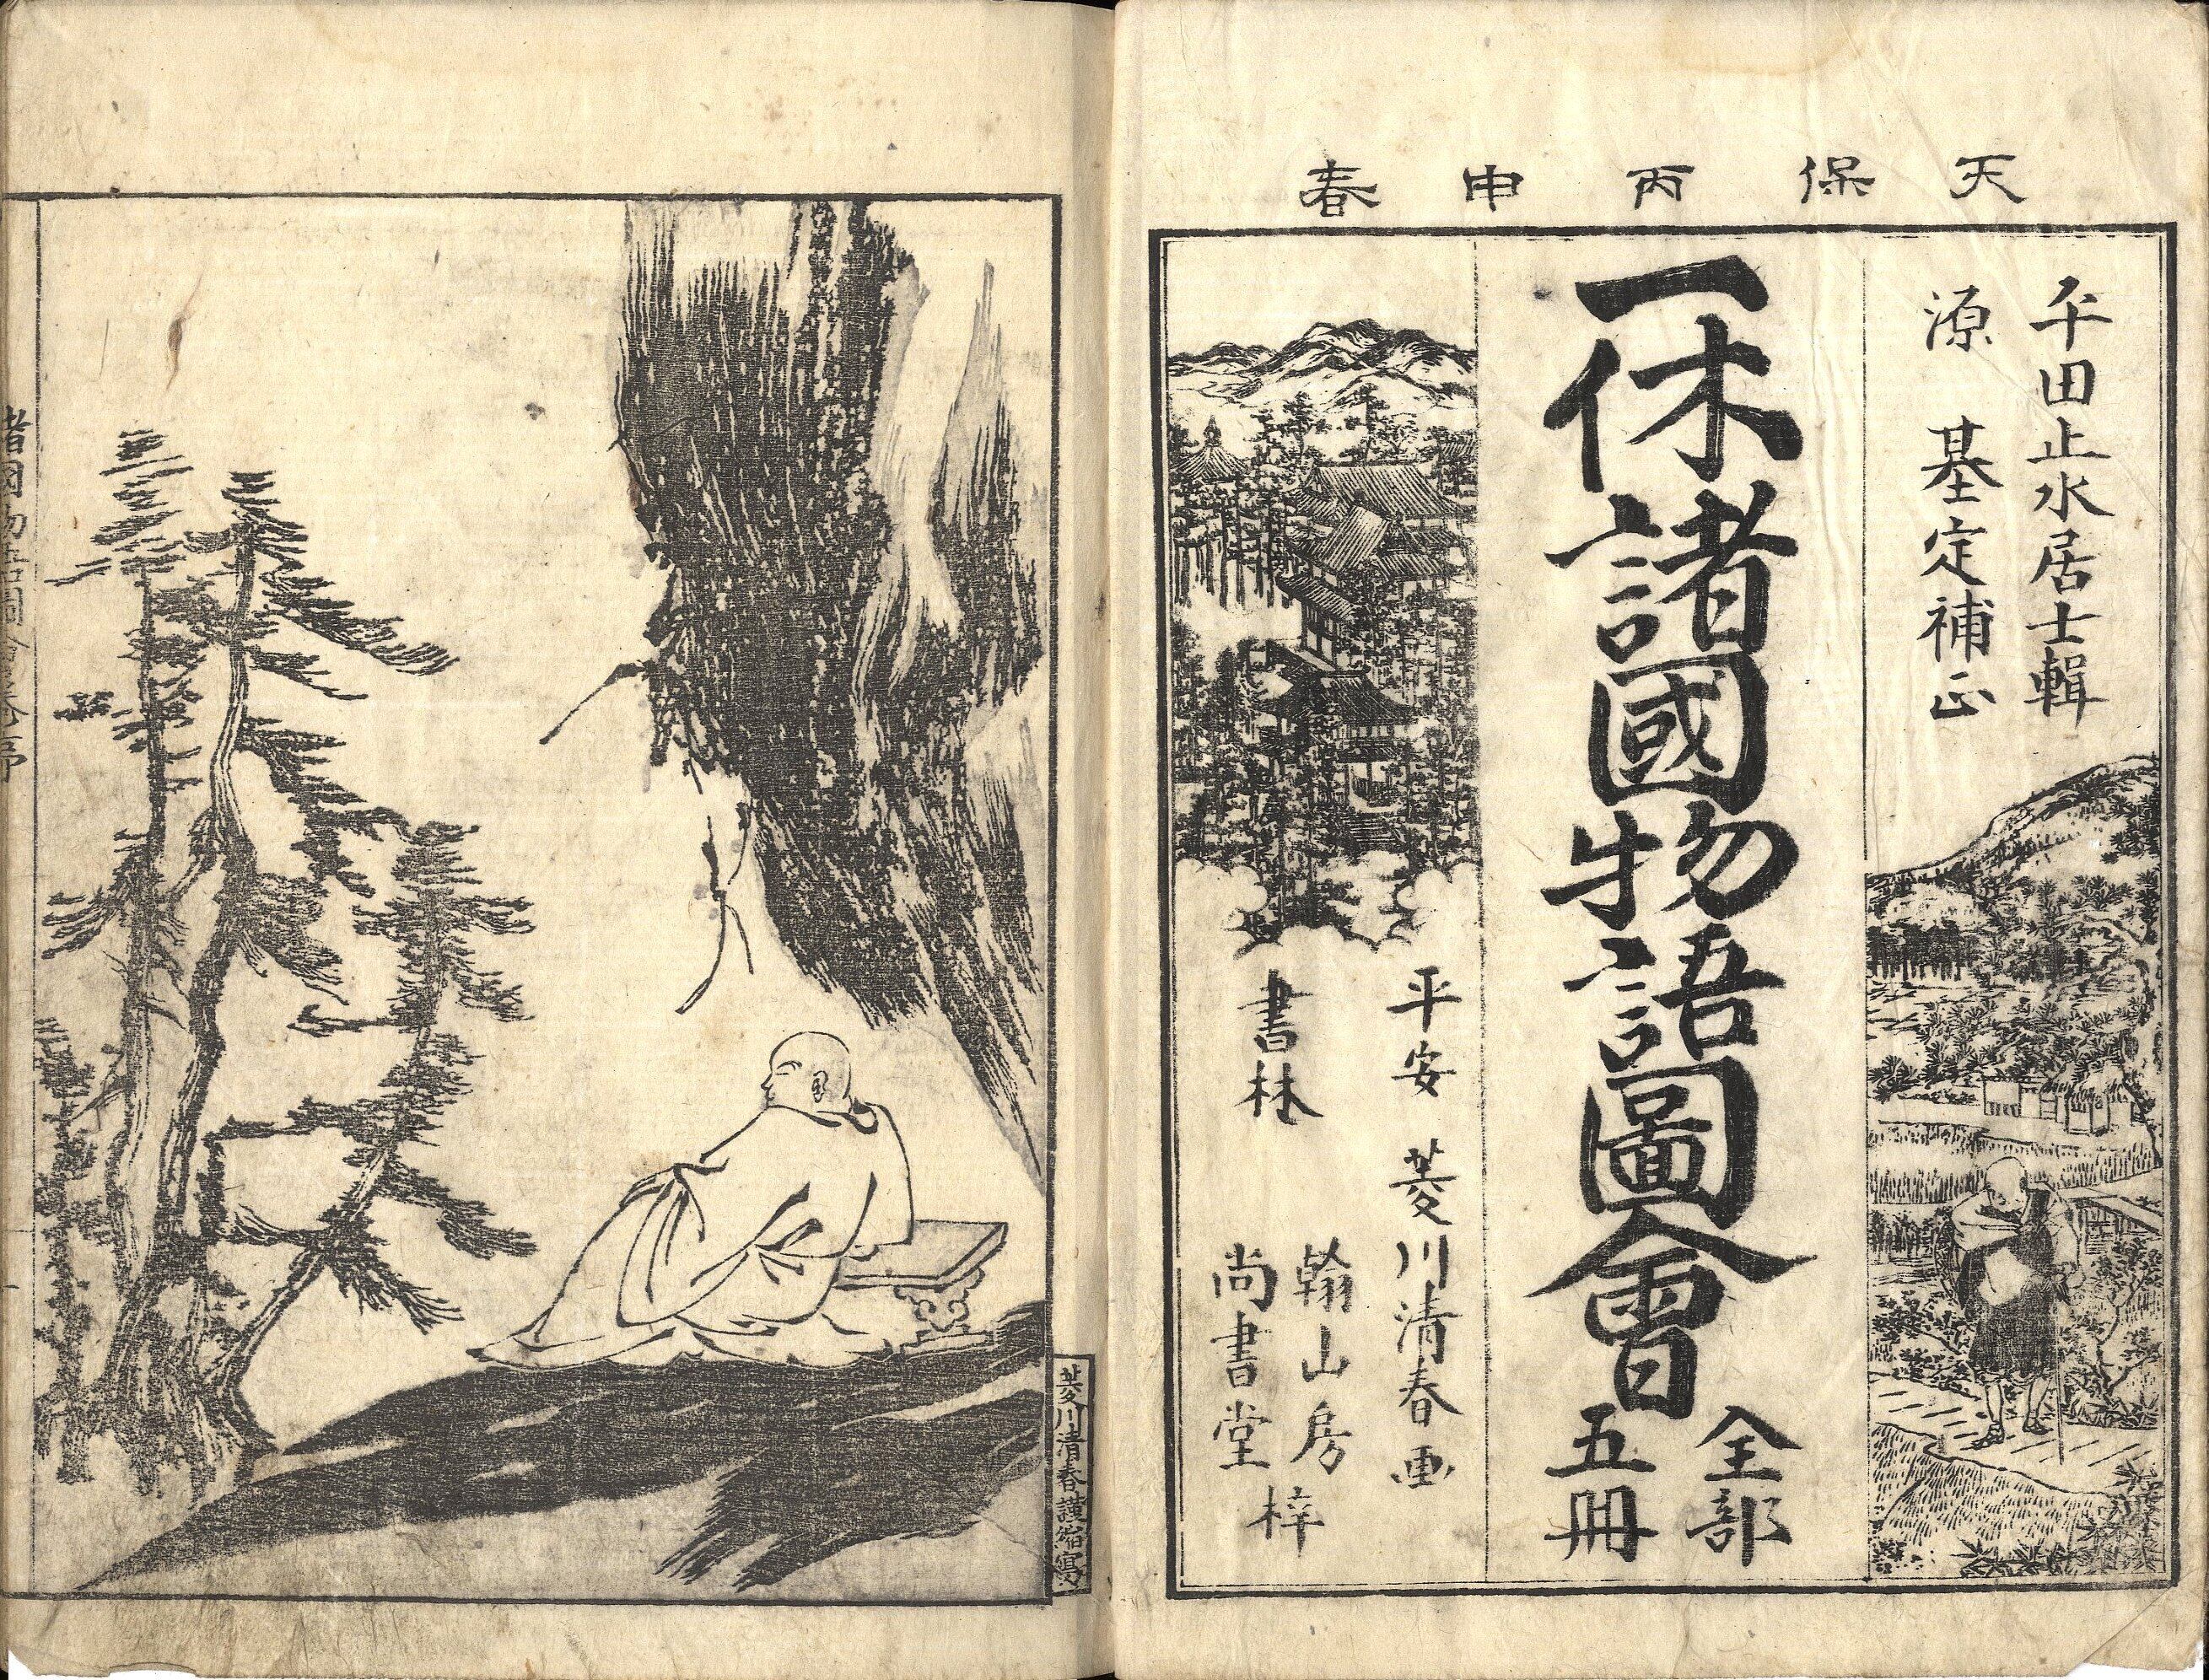 天保丙申春
平田止水居士輯
源 基定補正
一休諸國物語圖會
全部
五冊
平安 菱川清春画
書林
翰山房
尚書堂
梓
菱川清春謹縮寫